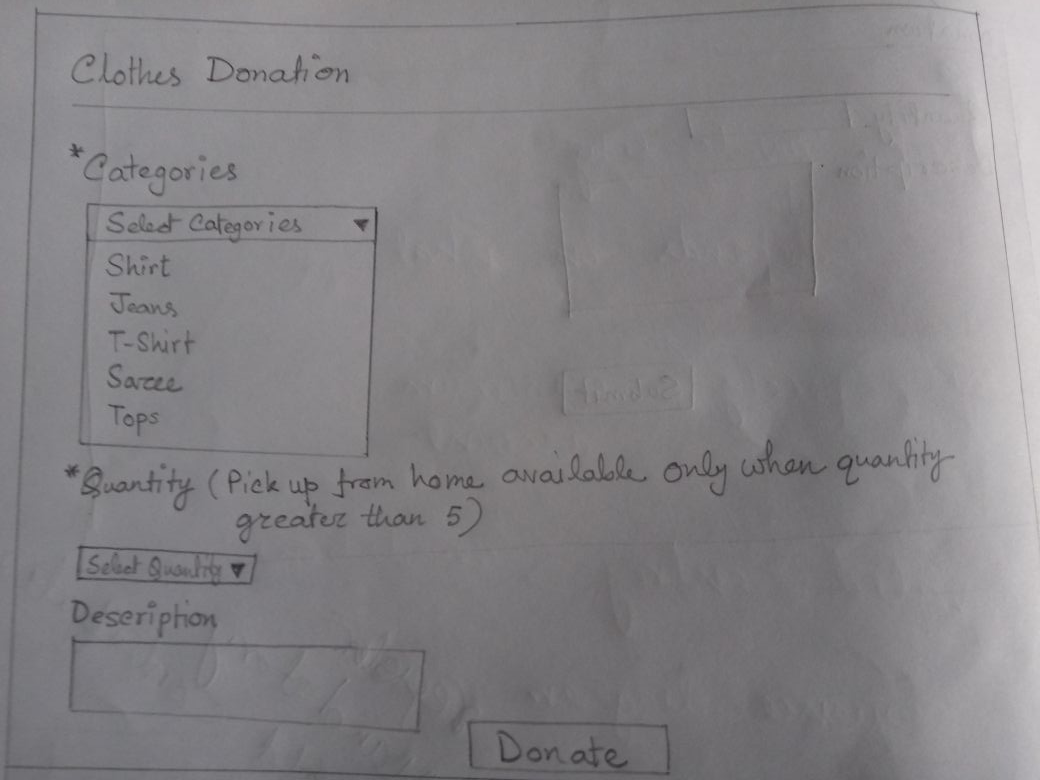 Clothes Donation
*Categories
Select Categories
Shirt
Jeans
T-Shirt
Saree
Tops
*Quantity (Pick up from home available only when quantity
greater than 5)
Select Quantity
Description
Donate
Submit